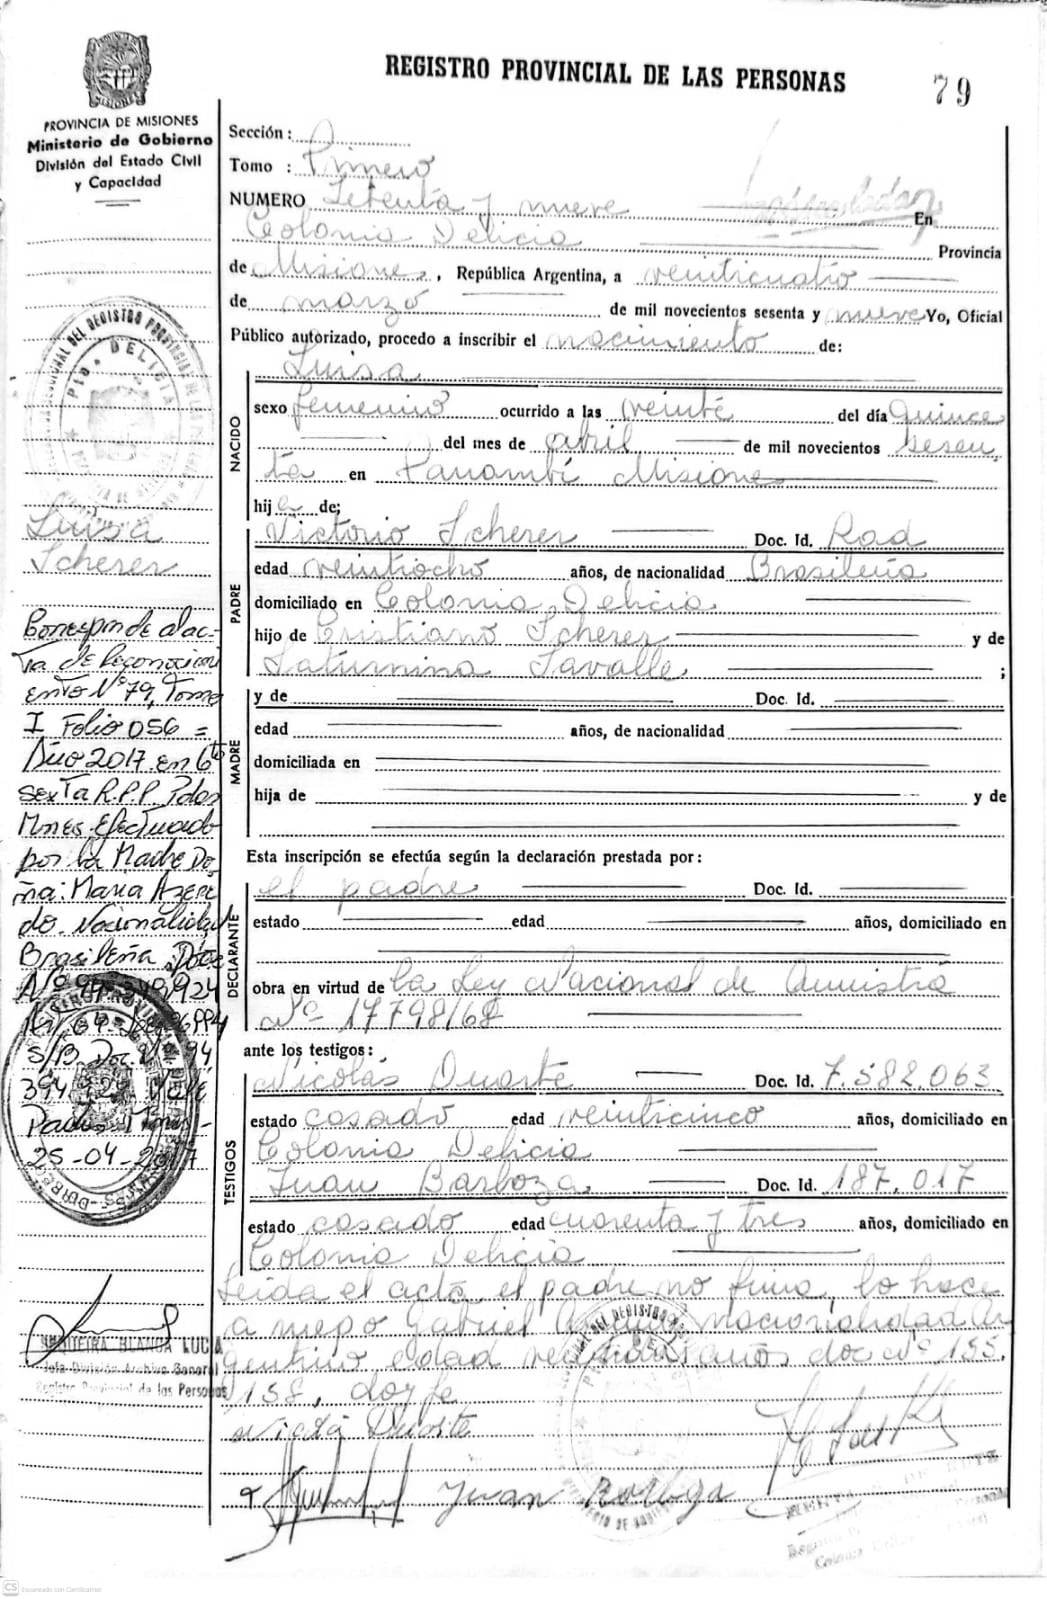 REGISTRO PROVINCIAL DE LAS PERSONAS
79
PROVINCIA DE MISIONES
Ministerio de Gobierno
División del Estado Civil
y Capacidad
Sección:
Tomo : Primero
NUMERO Setenta y nueve En
Colonia Delicia Provincia
de Misiones, República Argentina, a veinticuatro
de marzo de mil novecientos sesenta y nueve Yo, Oficial
Público autorizado, procedo a inscribir el nacimiento de:
NACIDO
Luisa
sexo femenino ocurrido a las veinte del día quince
del mes de abril de mil novecientos sesen
ta en Panambí Misiones
hija de;
PADRE
Victorio Scherer Doc. Id. Rad
edad veintiocho años, de nacionalidad Brasileña
domiciliado en Colonia Delicia
hijo de Cristiano Scherer y de
Saturnina Savalle ;
MADRE
y de Doc. Id.
edad años, de nacionalidad
domiciliada en
hija de y de
Esta inscripción se efectúa según la declaración prestada por:
DECLARANTE
el padre Doc. Id.
estado edad años, domiciliado en
obra en virtud de la Ley Nacional de Amnistia
Nº 17798/68
ante los testigos:
TESTIGOS
Nicolás Duarte Doc. Id. 7.582.063
estado casado edad veinticinco años, domiciliado en
Colonia Delicia
Juan Barboza Doc. Id. 187.017
estado casado edad cuarenta y tres años, domiciliado en
Colonia Delicia
Leida el acta el padre no firma, lo hace
a ruego Gabriel nacionalidad Ar
gentino edad años doc Nº 155.
158, doy fe
Duarte
Juan Barboza
Luisa
Scherer
Corresponde al ac-
ta de Reconocimi
ento Nº 79, Tomo
I Folio 056 =
Año 2017 en 6ta
sexta R.P.P. Pdas
Mnes. Efectuado
por la Madre Do-
ña: Maria Azere
do. Nacionalidad
Brasileña
S/B. Doc. Nº 94
394.729 Vale
25-04-2017
DELICIA
SEQUEIRA BLANCA LUCIA
Jefa División Archivo General
Registro Provincial de las Personas
CS Escaneado con CamScanner